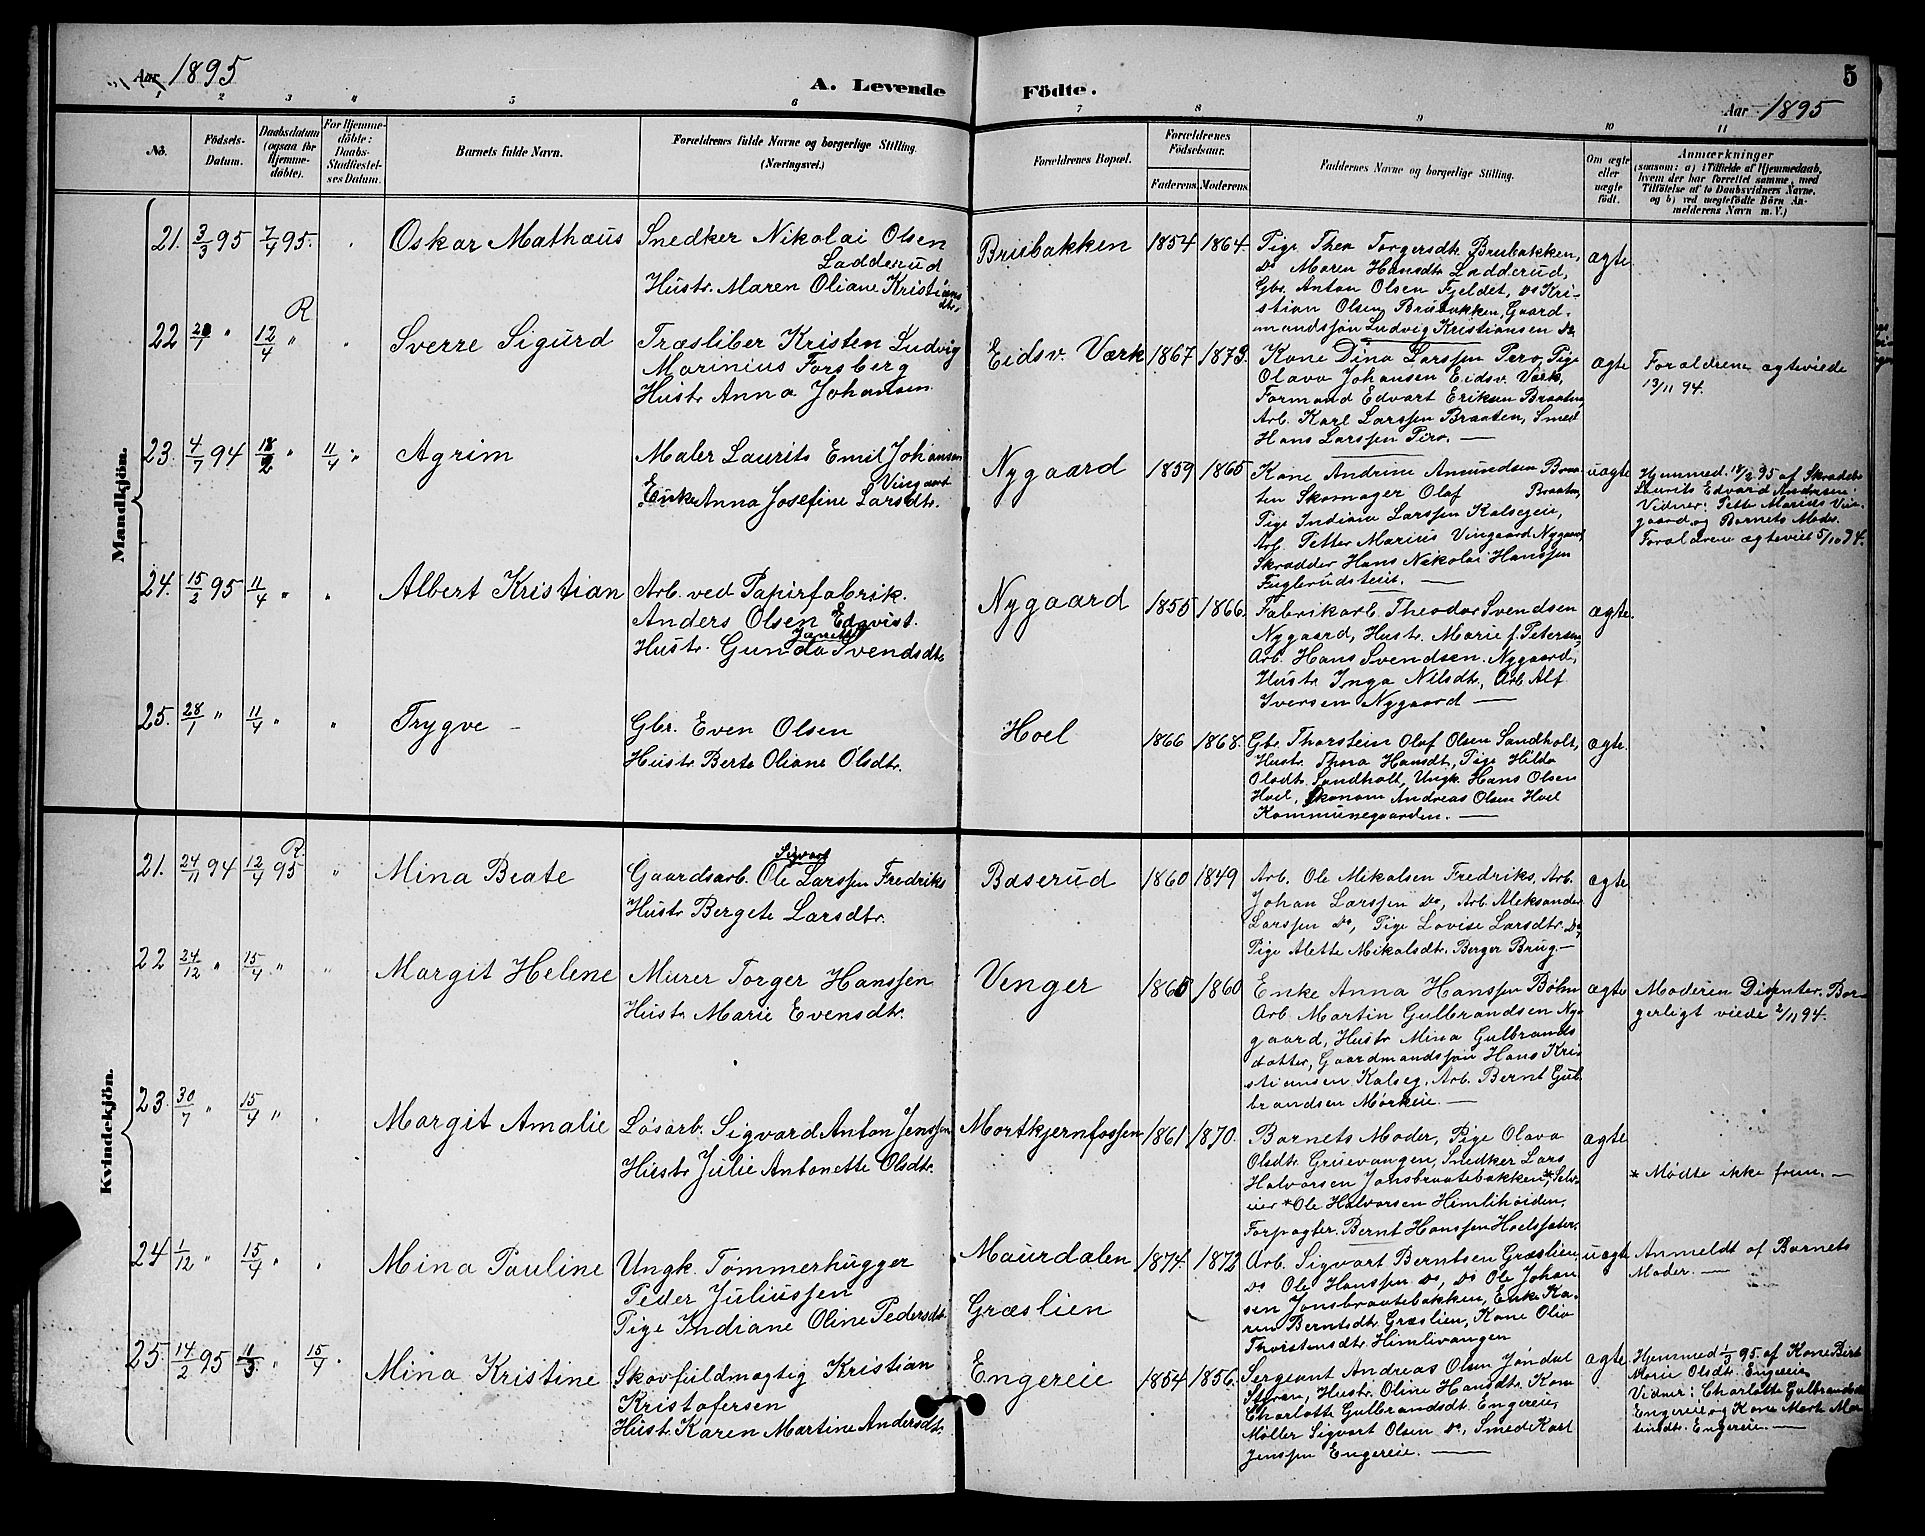 Aar 1895
A. Levende Födte.
5
Aar 1895
1 2 3 4 5 6 7 8 9 10 11
No.
Födsels-
Datum.
Daabsdatum
(ogsaa for
Hjemme-
döbte).
For Hjemme-
döbte:
Daabs-
Stadfæstel-
ses Datum.
Barnets fulde Navn.
Forældrenes fulde Navne og borgerlige Stilling.
(Næringsvei.)
Forældrenes Bopæl.
Forældrenes
Födselsaar.
Faderens. Moderens.
Faddernes Navne og borgerlige Stilling.
Om ægte
eller
uægte
født.
Anmærkninger
(saasom: a) i Tilfælde af Hjemmedaab,
hvem der har forrettet samme, med
Tilföielse af to Daabsvidners Navne,
og b) ved uægtefödte Börn An-
melderens Navn m. V.)
Mandkjön.
21. 3/3 95 7/4 95.
Oskar Mathæus
Snedker Nikolai Olsen
Ladderud
Hustr. Maren Oliane Kristians
dtr.
Brubakken
1854 1864.
Pige Thea Torgersdtr. Brubakken,
Do Maren Hansdtr. Ladderud,
Gbr. Anton Olsen Fjeldet, Do Kri-
stian Olsen Brubakken, Gaard-
mandssøn Ludvig Kristiansen Do.
ægte
R
22 12/4 "
Sverre Sigurd
Træsliber Kristen Ludvig
Marinius Forsberg
Hustr. Anna Johansen
Eidsv. Værk
1867 1873.
Kone Dina Larssen Piro, Pige
Olava Johansen Eidsv. Værk,
Formand Edvart Eriksen Braaten
Arb. Karl Larssen Braaten, Smed
Hans Larssen Piro. —
ægte
Forældrene ægteviede
13/11 94.
23. 4/7 94 18/2 " 11/4 "
Agrim
Maler Laurits Emil Johansen
Vingaard
Enke Anna Josefine Larsdtr.
Nygaard
1859 1865
Kone Andrine Amundsen Braa-
ten Skomager Olaf Braaten,
Pige Indiane Larssen Kalsegeie,
Arb. Petter Marius Vingaard Nygaard
Skrædder Hans Nikolai Hanssen
Fuglerudsteie. —
uægte
Hjemmed. 18/2 95 af Skrædder
Laurits Edvard Andresen
Vidner: Petter Marius Vin-
gaard og Barnets Moder.
Forældrene ægteviet 5/10 94.
24. 15/2 95 11/4 "
Albert Kristian
Arb. ved Papirfabrik.
Anders Olsen Edqvist.
Hustr. Gunda Svendsdtr.
Nygaard
1855 1866.
Fabrikarb. Theodor Svendsen
Nygaard, Hustr. Marie f. Petersen,
Arb. Hans Svendsen Nygaard,
Hustr. Inga Nilsdtr., Arb. Alf
Iversen Nygaard —
ægte.
25. 28/1 " 11/4 "
Trygve —
Gbr. Even Olsen
Hustr. Berte Oliane Olsdtr.
Hoel
1866 1868.
Gbr. Thorstein Olaf Olsen Sandholt,
Hustr. Thora Hansdtr, Pige Hilda
Olsdtr. Sandholt, Ungk. Hans Olsen
Hoel, Økonom Andreas Olsen Hoel
Kommunegaarden. —
ægte.
Kvindekjön.
R
21. 24/11 94 12/4 95 "
Mina Beate
Sigvart
Gaardsarb. Ole Larssen Fredriks
Hustr. Bergete Larsdtr.
Baserud
1860 1849
Arb. Ole Mikalsen Fredriks, Arb.
Johan Larssen Do, Arb. Aleksander
Larssen Do, Pige Lovise Larsdtr. Do,
Pige Alette Mikalsdtr. Berger Brug —
ægte
22 24/12 " 15/4 " "
Margit Helene
Murer Torger Hanssen
Hustr. Marie Evensdtr.
Venger
1865 1860
Enke Anna Hanssen Bøhn
Arb. Martin Gulbrandsen Ny-
gaard, Hustr. Mina Gulbrands
datter, Gaardmandssøn Hans Kris
tiansen Kalseg, Arb. Bernt Gul-
brandsen Mørkeie. —
ægte
Moderen Dissenter. Bor-
gerligt viede 2/11 94.
23. 30/7 " 15/4 "
Margit Amalie
Løsarb. Sigvard Anton Jenssen
Hustr. Julie Antonette Olsdtr.
Mortkjernfossen
1861 1870.
Barnets Moder, Pige Olava
Olsdtr. Gruevangen, Snedker Lars
Halvorsen Jonsbraatebakken*, Selv-
eier *Ole Halvorsen Himlihøiden,
Forpagter Bernt Hanssen Hoelssæter.
ægte
* Mødte ikke frem. —
24 1/12 " 15/4 "
Mina Pauline
Ungk. Tømmerhugger
Peder Juliussen
Pige Indiane Oline Pedersdtr
Maurdalen
Græslien
1874 1872
Arb. Sigvart Berntsen Græslien,
Do Ole Hanssen Do, Do Ole Johan
sen Jonsbraatebakken, Enke Ka-
ren Berntsdtr. Græslien, Kone Olia
Thorstensdtr. Himlivangen
uægte
Anmeldt af Barnets
Moder. —
25. 14/2 95 11/3 " 15/4 "
Mina Kristine
Skovfuldmægtig Kristian
Kristofersen
Hustr. Karen Martine Andersdtr.
Engereie
1854 1856.
Sergeant Andreas Olsen Jøndal
Styren, Hustr. Oline Hansdtr. Kone
Charlotte Gulbrandsdtr. Engereie,
Møller Sigvart Olsen Do, Smed Karl
Jenssen Engereie. —
ægte
Hjemmed. 1/3 95. af Kone Birt
Marie Olsdtr. Engereie
Vidner: Charlotte Gulbrandsdtr
Engereie og Kone Marte Mar
tinsdtr. Engereie. —